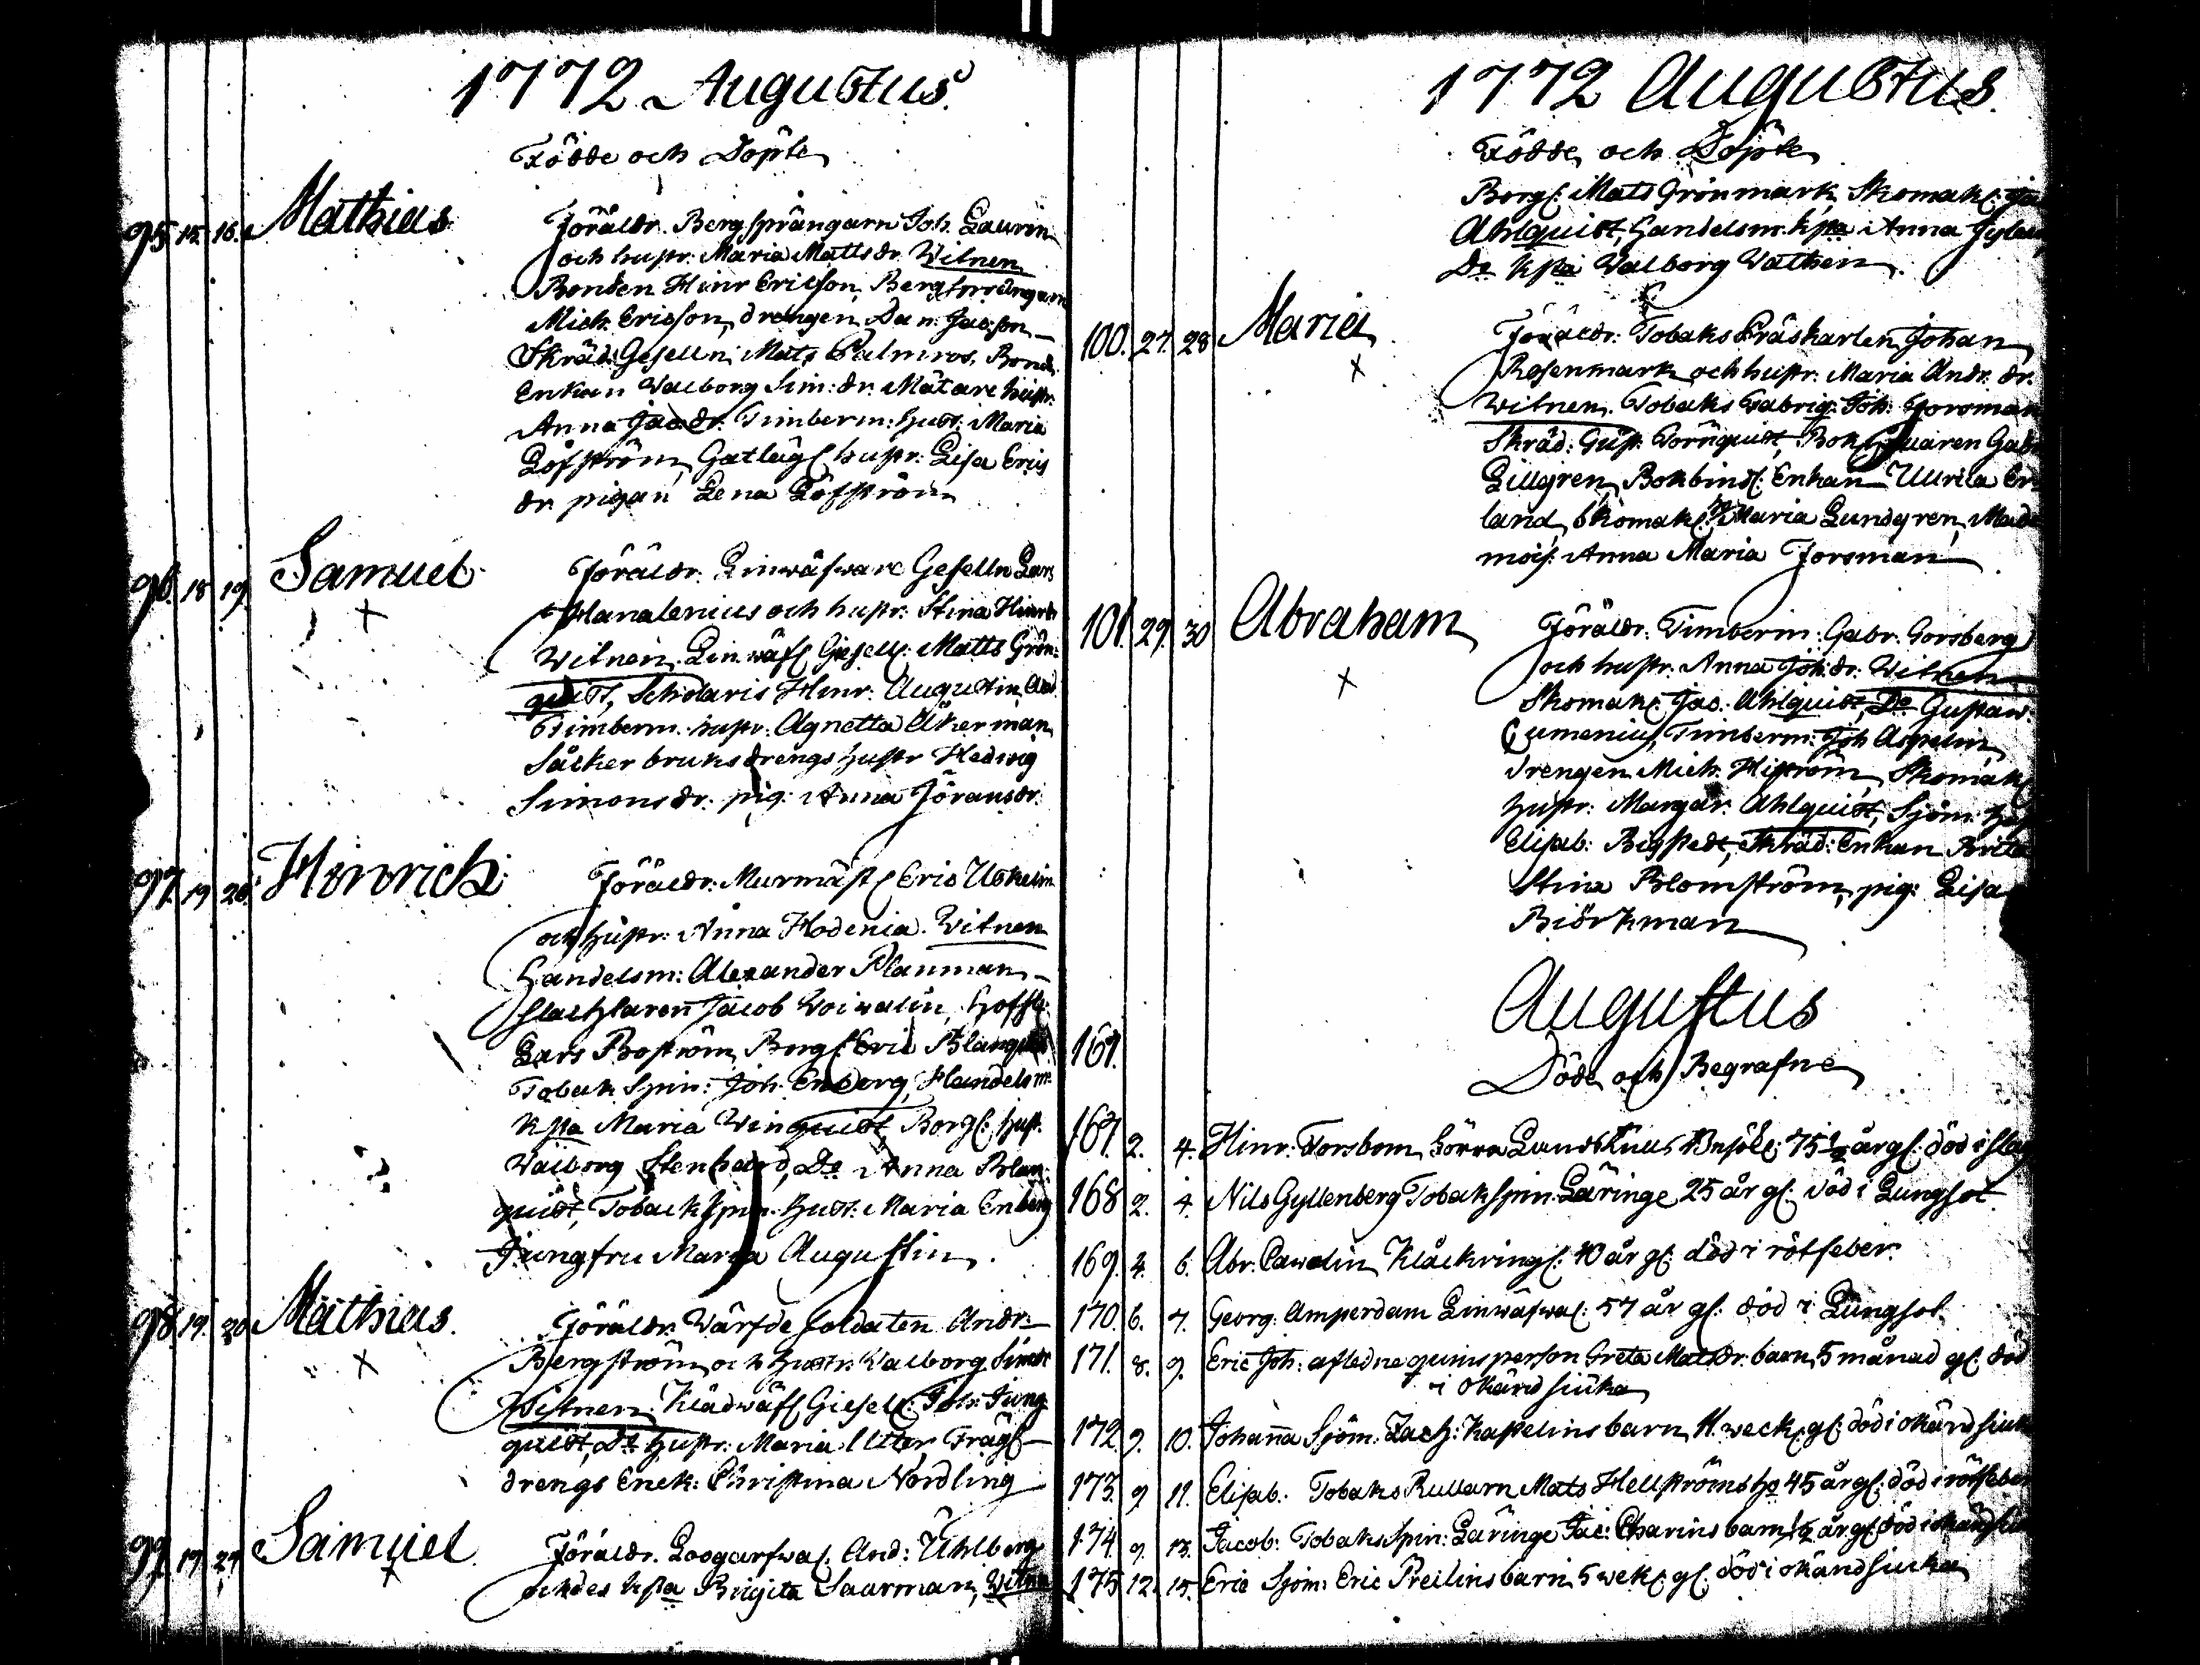 1772 Augustus
Födde och Döpte
95. 15. 16. Mathias Föräldr. Bergsprängarn Joh. Laurin
och hustr. Maria Matts dr. Witnen
Bonden Hinr Ericsson, Bergsprängarn
Mich. Ericsson, drengen Dan. Jacsson
Skräd. Geselln Mats Palmros. Bond.
Enkan Walborg Sim: dr. Mätare hustr.
Anna Jac dr. Timberm: Hust. Maria
Löfström, Gatläg: hustr: Lisa Erics
dr pigan Lena Löfström
96. 18 19. Samuel Föräldr. Linwäfware Geselln Lars
Hanalenius och hustr: Stina Hinrs
Witnen. Linwäf: Gesell: Matts Grön
quist, Scholaris Hinr. Augustin
Timberm. hustr. Agnetta Åkerman
Såcker bruks drengs hustr Hedwig
Simons dr. pig: Anna Jörans dr.
97. 19 20. Hinrich Föräldr: Murmäst: Eric Uskelin
och hustr: Anna Hodenia. Witnen
Handelsm: Alexander Planman
Slachtaren Jacob Woivalin,
Lars Boström, Borg: Eric Blanquist
Tobak Spin: Joh. Enberg, Handelsm
K sta Maria Winquist, Borg: hust.
Walborg Stenhard, Do Anna Blan
quist, Tobackspin. Hust. Maria Enberg
Jungfru Maria Augustin.
98. 19. 20 Mathias. Föräldr. Wärfde soldaten Andr:
Bergström och Hustr: Walborg Sim dr
Witnen. Klädwäf: Giesell: Joh. Jung
quist, Do hustr: Maria Utter Träg:
drengs Enck: Christina Nordling
99. 19. 21 Samuel Föräldr. Logarfwa: And: Uhlberg
och des k sta Birgita Saurman, Witne
1772 Augustus.
Födde och Döpte
Borg: Mats Grönmark, Skomak: Ja
Ahlquist, Handelsm. ksta Anna
Do ksta Walborg Wathen.
100. 27. 28 Maria Föräldr. Tobaks Präskarlen Johan
Rosenmark och hustr: Maria Andr. dr.
Witnen. Tobaks Fabriq: Joh. Forsman
Skräd: Gust. Törnquist, Bokh:
Lillgren, Bokbind: Enkan Ullrica Er
land, Skomak: Maria Lundgren, Made
mois: Anna Maria Forsman
101. 29. 30 Abraham Föräldr: Timberm: Gabr. Forsberg
och hustr. Anna Joh: dr. Witnen
Skomak: Jac. Ahlquist, Do Gustaw
Cumenius, Timberm: Joh Aspelin
drengen Mich. Histrom, Skomak
hustr: Margar. Ahlquist, Sjöm:
Elisab: Bigstedt, Skräd: Enkan Brita
Stina Blomström, pig: Lisa
Biörkman
Augustus
167. Döde och Begrafne
167. 2. 4. Hinr. Forsbom förra Landsknus 75 1/2 år gl: död i slag
168 2. 4. Nils Gyllenberg Tobakspin: Läringe 25 år gl: död i Lungsot
169. 4. 6. Abr. Cawalin Klåckring: 40 år gl: död i rötfeber.
170. 6. 7. Georg. Amperdam Linwäfwa: 57 år gl: död i Lungsot.
171. 8. 9. Eric Joh: afledne quinsperson Greta Mats dr. barn, 5 månad gl: död
i okänd siuka
172. 9. 10. Johanna Sjöm. Zach: Kapelins barn 11. weck: gl: död i okänd siuk
173. 9 11. Elisab: Tobaks Rullarn Mats Hellströms ho 45 år gl: död i rötfeber
174. 9. 13. Jacob: Tobaks Spin: Läringe Jac: Charins barn 1/2 år gl: död i okänd siu
175 12. 15. Eric Sjöm: Eric Preilins barn 5 wek: gl: död i okänd siucka